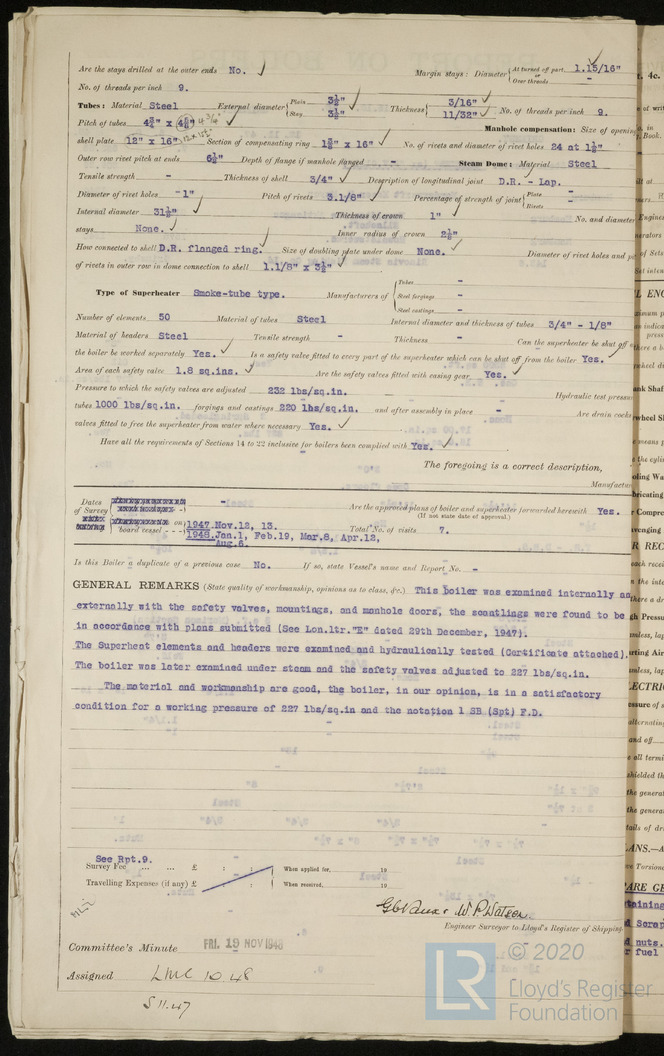 Are the stays drilled at the outer ends No. Margin stays: Diameter At turned off part, 1.15/16" or Over threads -
No. of threads per inch 9.
Tubes: Material Steel External diameter Plain 3½" Stay 3½" Thickness 3/16" 11/32" No. of threads per inch 9.
Pitch of tubes 4¾" x 4⅝" Manhole compensation: Size of opening in
shell plate 12" x 16" Section of compensating ring x 16" No. of rivets and diameter of rivet holes 24 at 1⅛"
Outer row rivet pitch at ends 6½" Depth of flange if manhole flanged - Steam Dome: Material Steel
Tensile strength - Thickness of shell 3/4" Description of longitudinal joint D.R. - Lap.
Diameter of rivet holes 1" Pitch of rivets 3.1/8" Percentage of strength of joint Plate - Rivets -
Internal diameter 31½" Thickness of crown 1" No. and diameter
stays None. Inner radius of crown 2½"
How connected to shell D.R. flanged ring. Size of doubling plate under dome None. Diameter of rivet holes and
of rivets in outer row in dome connection to shell 1.1/8" x 3½"
Type of Superheater Smoke-tube type. Manufacturers of Tubes - Steel forgings - Steel castings -
Number of elements 50 Material of tubes Steel Internal diameter and thickness of tubes 3/4" - 1/8"
Material of headers Steel Tensile strength - Thickness - Can the superheater be shut off
the boiler be worked separately Yes. Is a safety valve fitted to every part of the superheater which can be shut off from the boiler Yes.
Area of each safety valve 1.8 sq.ins. Are the safety valves fitted with easing gear Yes.
Pressure to which the safety valves are adjusted 232 lbs/sq.in. Hydraulic test pressure
tubes 1000 lbs/sq.in. forgings and castings 220 lbs/sq.in. and after assembly in place - Are drain cocks
valves fitted to free the superheater from water where necessary Yes.
Have all the requirements of Sections 14 to 22 inclusive for boilers been complied with Yes.
The foregoing is a correct description,
Manufactur
Dates of Survey - Are the approved plans of boiler and superheater forwarded herewith Yes.
(If not state date of approval.)
on board vessel - - - 1947.Nov.12, 13. Total No. of visits 7.
1948.Jan.1, Feb.19, Mar.8, Apr.12,
Aug.6.
Is this Boiler a duplicate of a previous case No. If so, state Vessel's name and Report No. -
GENERAL REMARKS (State quality of workmanship, opinions as to class, &c.) This boiler was examined internally an
externally with the safety valves, mountings, and manhole doors, the scantlings were found to be
in accordance with plans submitted (See Lon.ltr."E" dated 29th December, 1947).
The Superheat elements and headers were examined and hydraulically tested (Certificate attached).
The boiler was later examined under steam and the safety valves adjusted to 227 lbs/sq.in.
The material and workmanship are good, the boiler, in our opinion, is in a satisfactory
condition for a working pressure of 227 lbs/sq.in and the notation 1 SB (Spt) F.D.
See Rpt.9.
Survey Fee ... ... £ : : When applied for, 19
Travelling Expenses (if any) £ : : When received, 19
W. P. Watson
Engineer Surveyor to Lloyd's Register of Shipping
Committee's Minute FRI. 19 NOV 1948
Assigned LMC 10.48
S 11.47
© 2020
LR Lloyd's Register
Foundation